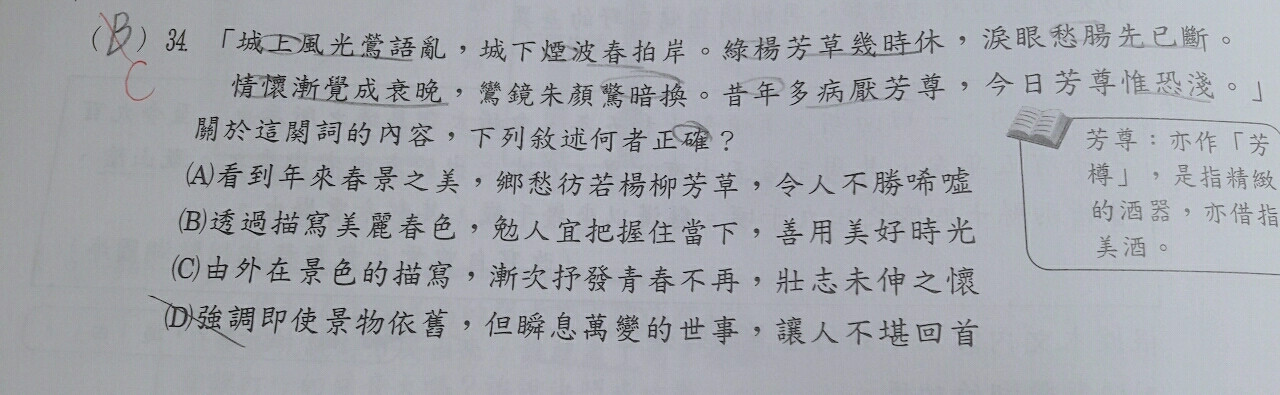 (B) 34 「城上風光鶯語亂，城下煙波春拍岸。綠楊芳草幾時休，淚眼愁腸先已斷。
C
情懷漸覺成衰晚，鸞鏡朱顏驚暗換。昔年多病厭芳尊，今日芳尊惟恐淺。」
關於這闋詞的內容，下列敘述何者正確？
(A)看到年來春景之美，鄉愁彷若楊柳芳草，令人不勝唏噓
(B)透過描寫美麗春色，勉人宜把握住當下，善用美好時光
(C)由外在景色的描寫，漸次抒發青春不再，壯志未伸之懷
(D)強調即使景物依舊，但瞬息萬變的世事，讓人不堪回首
芳尊：亦作「芳
樽」，是指精緻
的酒器，亦借指
美酒。